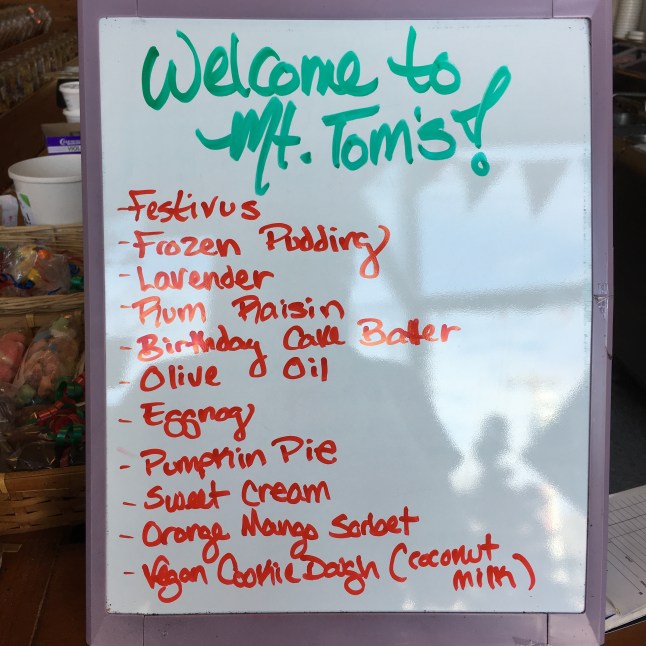 Welcome to
Mt. Tom's!
-Festivus
-Frozen Pudding
-Lavender
-Rum Raisin
-Birthday Cake Batter
-Olive Oil
-Eggnog
-Pumpkin Pie
-Sweet Cream
-Orange Mango Sorbet
-Vegan Cookie Dough (coconut
milk)